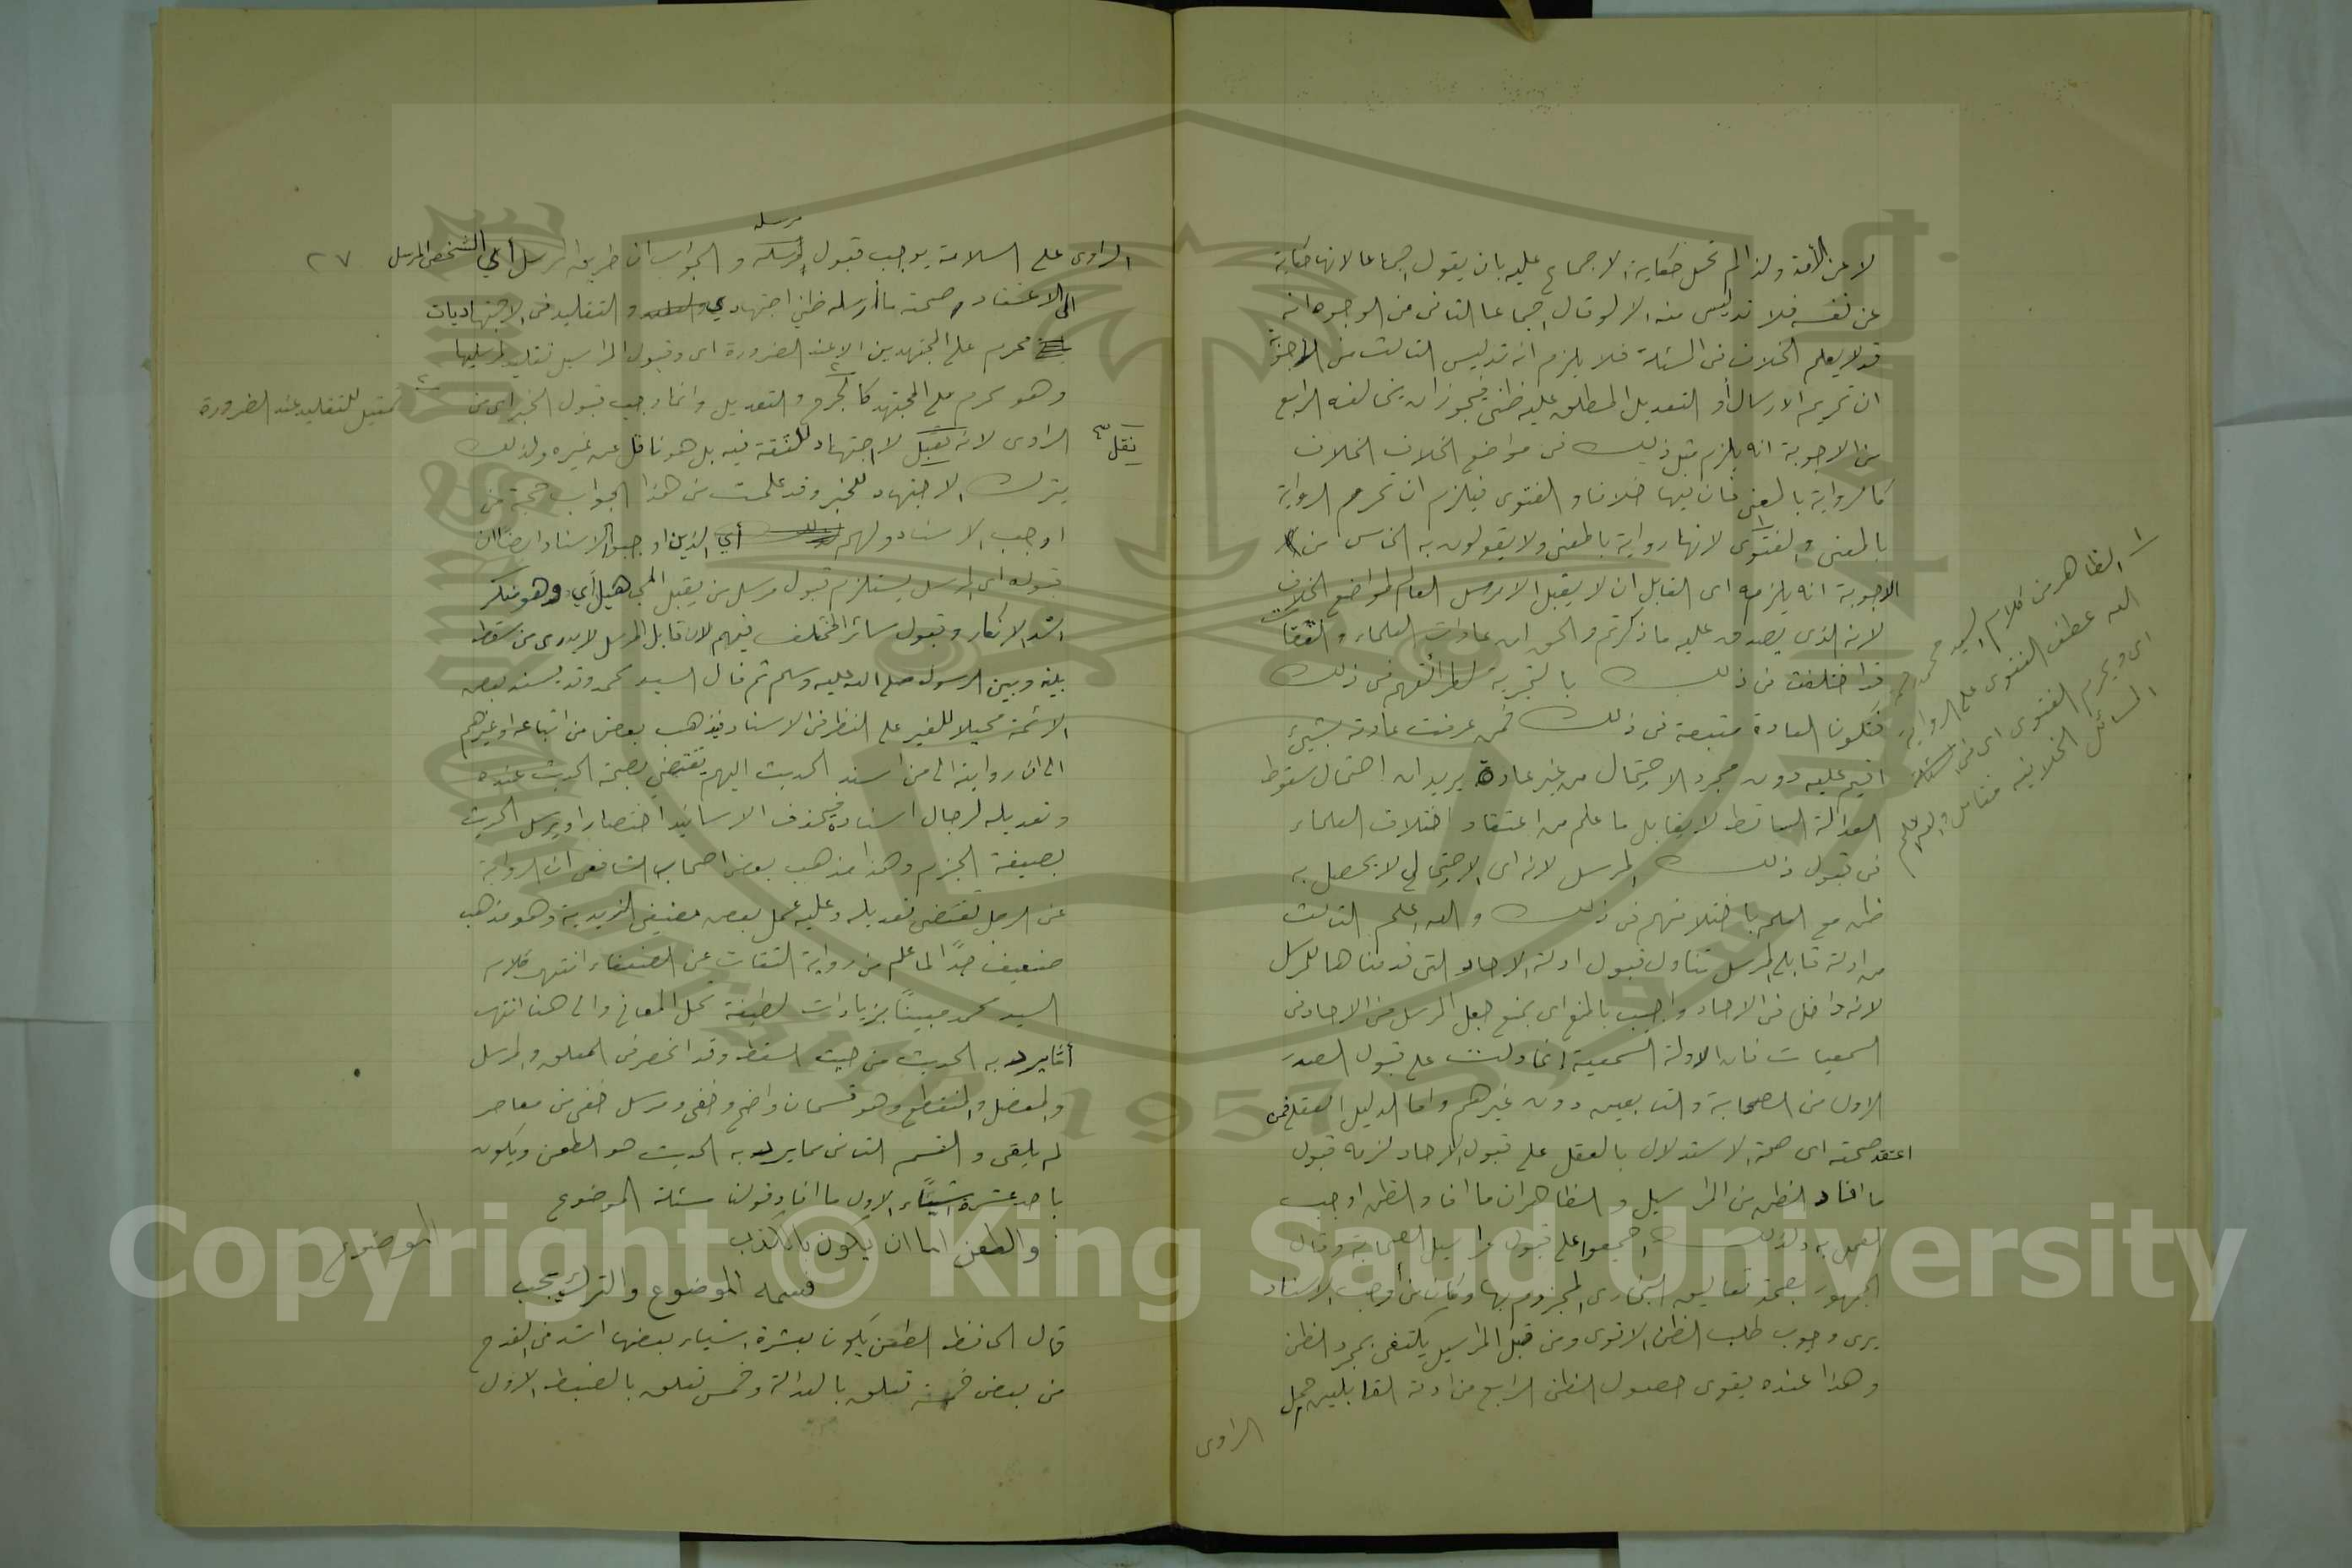 لا عن الأمة ولذا لم تحل حكاية الاجماع عليه بان يقول اجماعا لانها حكاية
عن نفسه فلا تدليس منه الا لو قال اجماعا الثاني من الوجوه انه
قد لا يعلم الخلاف في المسئلة فلا يلزم انه تدليس الثالث من الاجوبة
ان تحريم الارسال أو التعديل المطلق عليه ظني فيجوز ان يخالفه الرابع
من الاجوبة انه يلزم مثل ذلك في مواضع الخلاف الخلاف
كالرواية بالمعنى فان فيها خلافا والفتوى فيلزم ان تحرم الرواية
بالمعنى والفتوى لانها رواية بالمعنى ولا يقولون به الخامس من
الاجوبة انه يلزم اى القابل ان لا يقبل الا مرسل العالم لمواضع الخلاف
لانه الذى يصدق عليه ما ذكرتم والحق ان عادات العلماء والثقات
قد اختلفت في ذلك بالتجربة لطرائقهم في ذلك
فتكون العادة متبعة في ذلك فمن عرفت عادته بشيئ
اقيم عليه دون مجرد الاحتمال من غير عادة يريد ان احتمال سقوط
العدالة الساقط لا يقابل ما علم من اعتقاد اختلاف العلماء
في قبول ذلك المرسل لانه اى الاحتمالي لا يحصل به
ظن مع العلم باختلافهم في ذلك والله اعلم الثالث
من ادلة قابلي المرسل تناول قبول ادلة الاحاد التى قدمناها للمرسل
لانه داخل في الاحاد واجيب بالمنع اى بمنع جعل المرسل من الاحاد في
السمعيات فان الادلة السمعية انما دلت على قبول الصدر
الاول من الصحابة والتابعين دون غيرهم واما الدليل العقلي فمن
اعتقد صحته اى صحة الاستدلال بالعقل على قبول الاحاد لزمه قبول
ما افاد الظن من المراسيل والظاهر ان ما افاد الظن اوجب
العمل به ولذلك اجمعوا على قبول مراسيل الصحابة وقال
الجمهور بصحة تعاليق البخارى المجزوم بها وكان من أوجب الاسناد
يرى وجوب طلب الظن الاقوى ومن قبل المراسيل يكتفى بمجرد الظن
وهذا عنده يقوى حصول الظن الرابع من ادلة القابلين حمل
الراوى
١ الظاهر من كلام السيد محمد
الله عطف الفتوى على الرواية
اى ويحرم الفتوى اى في مسئلة
المسائل الخلافية فتأمل والله اعلم
٢٧
مرسله
الراوى على السلامة يوجب قبول مرسله والجواب ان طريق المرسل أي الشخص المرسل
الى الاعتقاد وصحة ما أرسله ظني اجتهادي والتقليد في الاجتهاديات
محرم على المجتهدين الا عند الضرورة اى وقبول المراسيل تقليد لمرسلها
وهو محرم على المجتهد كالجرح والتعديل وانما وجب قبول الخبر اى من
تمثيل للتقليد عند الضرورة
الراوى لانه نقل لا اجتهاد للثقة فيه بل هو ناقل عن غيره ولذلك
نقل
يترك الاجتهاد للخبر وقد علمت من هذا الجواب حجة من
اوجب الاسناد ولهم أي الذين اوجبوا الاسناد ايضا ان
قبوله اى المرسل يستلزم قبول مرسل من يقبل المجاهيل أي وهو منكر
اشد الانكار وقبول سائر المختلف فيهم لان قابل المرسل لا يدرى من سقط
بينه وبين الرسول صلى الله عليه وسلم ثم قال السيد محمد وقد يسند بعض
الائمة محيلا للغير على النظر في الاسناد فيذهب بعض من اتباعه او غيرهم
الى ان رواية الى من اسند الحديث اليهم تقتضي بصحة الحديث عنده
وتعديله لرجال اسناده فيحذف الاسانيد اختصارا ويرسل الحديث
بصيغة الجزم وهذا مذهب بعض اصحاب الشافعى ان الرواية
عن الرجل تقتضى تعديله وعليه عمل بعض مصنفي الزيدية وهو مذهب
ضعيف جدًا لما علم من رواية الثقات عن الضعفاء انتهى كلام
السيد محمد مبينًا بزيادات لطيفة تحل المعانى والى هنا انتهى
ما يرد به الحديث من حيث السقط وقد انحصر في المعلق والمرسل
والمعضل والمنقطع وهو قسمان واضح وخفى ومرسل خفى من معاصر
لم يلقى والقسم الثانى مما يرد به الحديث هو الطعن ويكون
باحد عشرة اشياء الاول ما افاد قولنا مسئلة الموضوع
والطعن اما ان يكون بالكذب
الموضوع
فسمه الموضوع والترك يجب
قال الحافظ الطعن يكون بعشرة اشياء بعضها اشد في القدح
من بعض خمسة تتعلق بالعدالة وخمس تتعلق بالضبط الاول
Copyright © King Saud University
1957